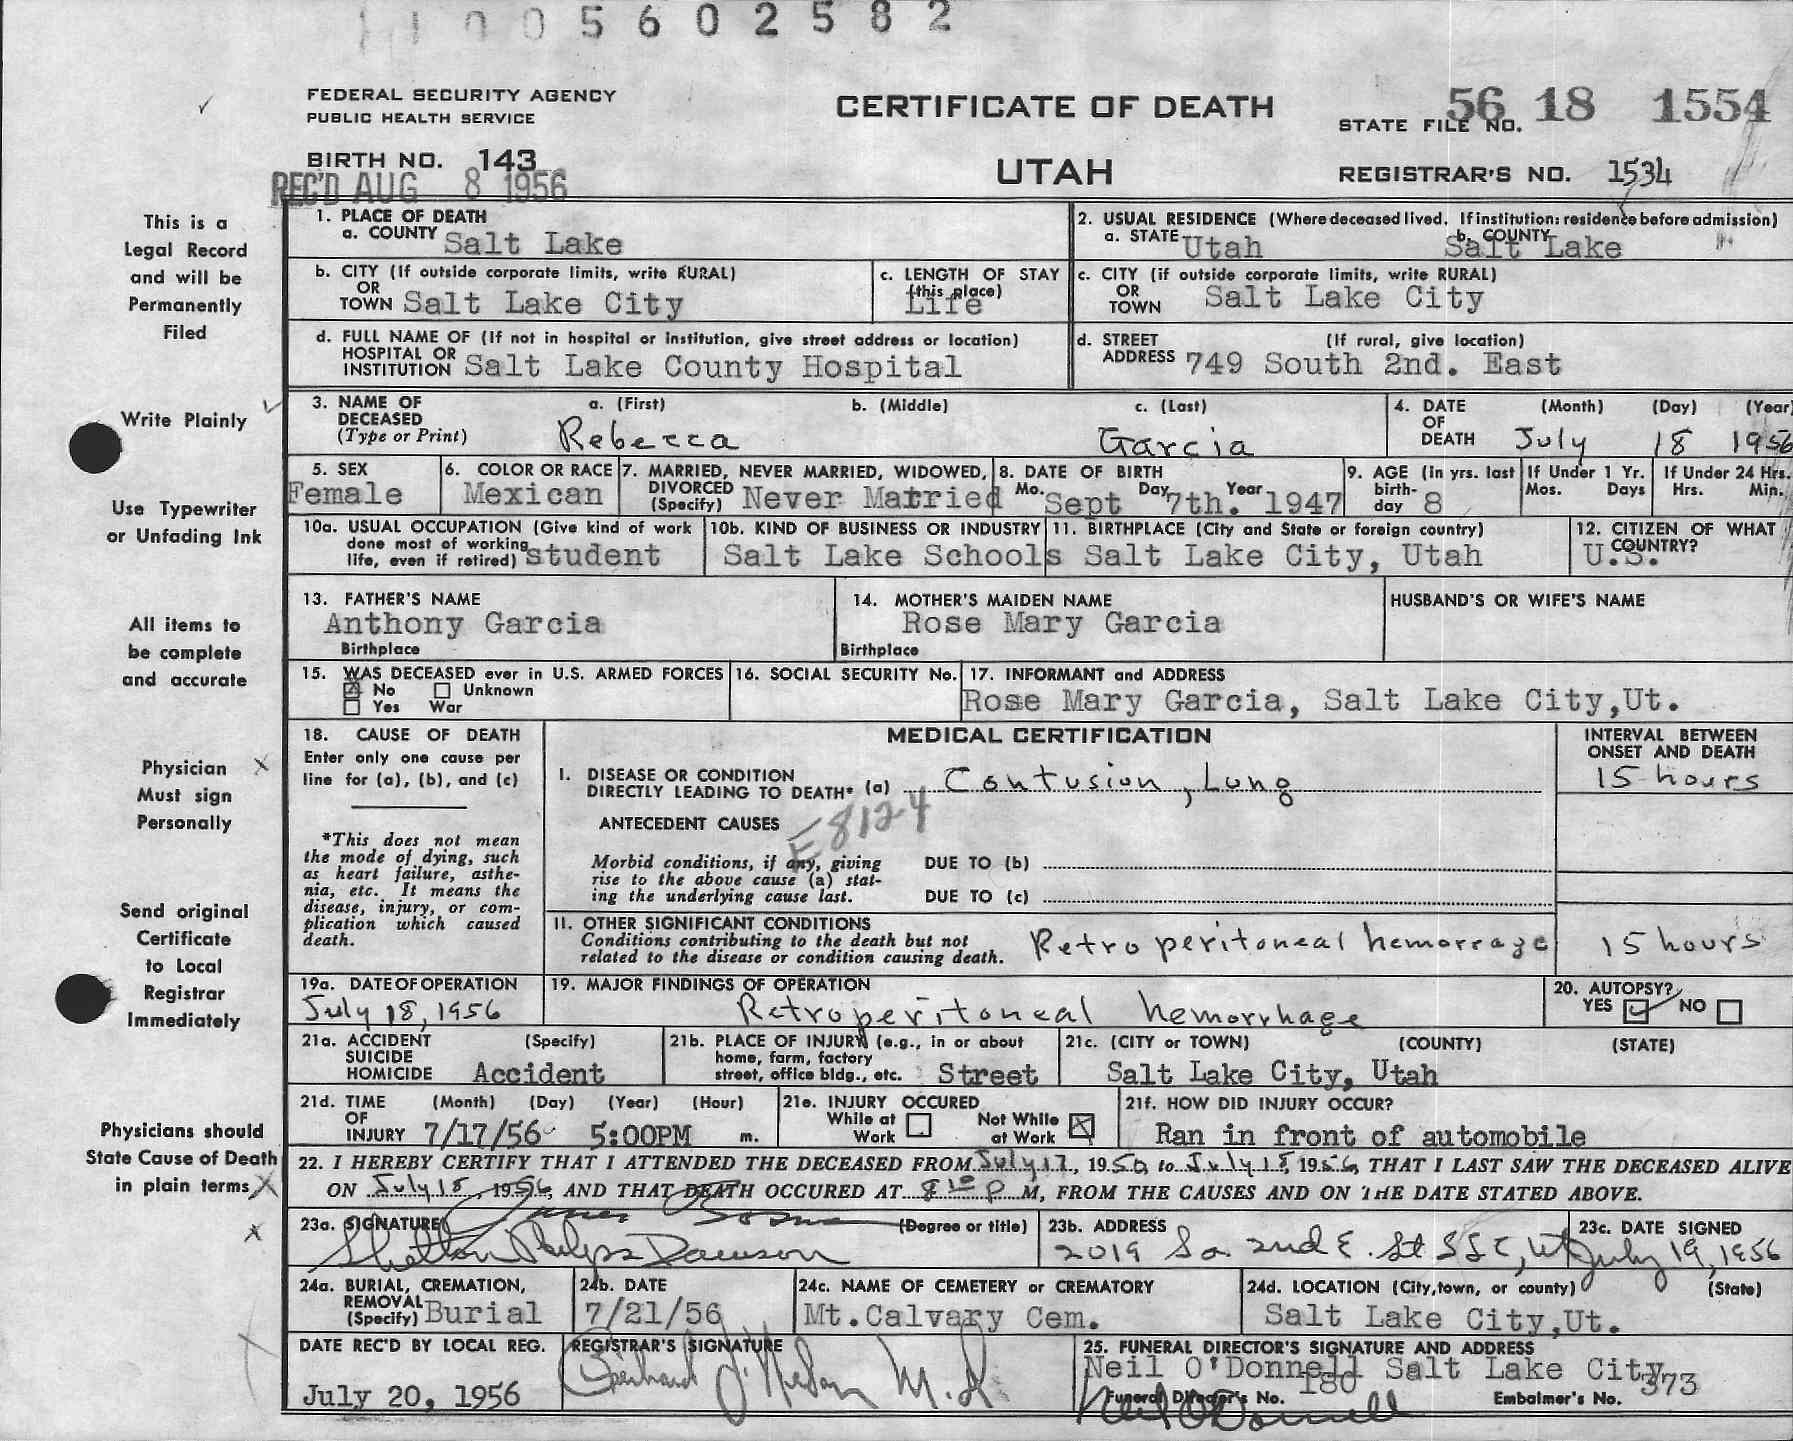 1 1 0 0 5 6 0 2 5 8 2
FEDERAL SECURITY AGENCY
PUBLIC HEALTH SERVICE
CERTIFICATE OF DEATH
UTAH
STATE FILE NO. 56 18 1554
BIRTH NO. 143
REGISTRAR'S NO. 1534
REC'D AUG 8 1956
This is a
Legal Record
and will be
Permanently
Filed
Write Plainly
Use Typewriter
or Unfading Ink
All items to
be complete
and accurate
Physician
Must sign
Personally
Send original
Certificate
to Local
Registrar
Immediately
Physicians should
State Cause of Death
in plain terms
1. PLACE OF DEATH
a. COUNTY Salt Lake
2. USUAL RESIDENCE (Where deceased lived. If institution: residence before admission)
a. STATE Utah b. COUNTY Salt Lake
b. CITY (If outside corporate limits, write RURAL)
OR
TOWN Salt Lake City
c. LENGTH OF STAY
(this place)
Life
c. CITY (if outside corporate limits, write RURAL)
OR
TOWN Salt Lake City
d. FULL NAME OF (If not in hospital or institution, give street address or location)
HOSPITAL OR
INSTITUTION Salt Lake County Hospital
d. STREET (If rural, give location)
ADDRESS 749 South 2nd. East
3. NAME OF DECEASED (Type or Print)
a. (First) b. (Middle) c. (Last)
Rebecca Garcia
4. DATE OF DEATH (Month) (Day) (Year)
July 18 1956
5. SEX
Female
6. COLOR OR RACE
Mexican
7. MARRIED, NEVER MARRIED, WIDOWED,
DIVORCED
(Specify) Never Married
8. DATE OF BIRTH
Mo. Sept Day 7th. Year 1947
9. AGE (in yrs. last
birth-
day 8
If Under 1 Yr.
Mos. Days
If Under 24 Hrs.
Hrs. Min.
10a. USUAL OCCUPATION (Give kind of work
done most of working
life, even if retired) student
10b. KIND OF BUSINESS OR INDUSTRY
Salt Lake Schools
11. BIRTHPLACE (City and State or foreign country)
Salt Lake City, Utah
12. CITIZEN OF WHAT
COUNTRY?
U.S.
13. FATHER'S NAME
Anthony Garcia
Birthplace
14. MOTHER'S MAIDEN NAME
Rose Mary Garcia
Birthplace
HUSBAND'S OR WIFE'S NAME
15. WAS DECEASED ever in U.S. ARMED FORCES
No Unknown
Yes War
16. SOCIAL SECURITY No.
17. INFORMANT and ADDRESS
Rose Mary Garcia, Salt Lake City,Ut.
18. CAUSE OF DEATH
Enter only one cause per
line for (a), (b), and (c)
*This does not mean
the mode of dying, such
as heart failure, asthe-
nia, etc. It means the
disease, injury, or com-
plication which caused
death.
MEDICAL CERTIFICATION
INTERVAL BETWEEN
ONSET AND DEATH
I. DISEASE OR CONDITION
DIRECTLY LEADING TO DEATH* (a) Contusion, Lung
15 hours
ANTECEDENT CAUSES
E8124
Morbid conditions, if any, giving
rise to the above cause (a) stat-
ing the underlying cause last.
DUE TO (b)
DUE TO (c)
II. OTHER SIGNIFICANT CONDITIONS
Conditions contributing to the death but not
related to the disease or condition causing death.
Retroperitoneal hemorrage
15 hours
19a. DATE OF OPERATION
July 18, 1956
19. MAJOR FINDINGS OF OPERATION
Retroperitoneal hemorrhage
20. AUTOPSY?
YES NO
21a. ACCIDENT (Specify)
SUICIDE
HOMICIDE Accident
21b. PLACE OF INJURY (e.g., in or about
home, farm, factory
street, office bldg., etc. Street
21c. (CITY or TOWN) (COUNTY) (STATE)
Salt Lake City, Utah
21d. TIME (Month) (Day) (Year) (Hour)
OF
INJURY 7/17/56 5:00PM m.
21e. INJURY OCCURED
While at Work Not While at Work
21f. HOW DID INJURY OCCUR?
Ran in front of automobile
22. I HEREBY CERTIFY THAT I ATTENDED THE DECEASED FROM July 17, 1956, to July 18, 1956, THAT I LAST SAW THE DECEASED ALIVE
ON July 18, 1956, AND THAT DEATH OCCURED AT 8 10 P M, FROM THE CAUSES AND ON THE DATE STATED ABOVE.
23a. SIGNATURE (Degree or title)
Shelton Phelps Dawson
23b. ADDRESS
2019 So. 2nd E. St SLC, Ut
23c. DATE SIGNED
July 19, 1956
24a. BURIAL, CREMATION,
REMOVAL
(Specify) Burial
24b. DATE
7/21/56
24c. NAME OF CEMETERY or CREMATORY
Mt.Calvary Cem.
24d. LOCATION (City,town, or county) (State)
Salt Lake City,Ut.
DATE REC'D BY LOCAL REG.
July 20, 1956
REGISTRAR'S SIGNATURE
M.D.
25. FUNERAL DIRECTOR'S SIGNATURE AND ADDRESS
Neil O'Donnell Salt Lake City
Funeral Director's No. 180 Embalmer's No. 373
Neil O'Donnell